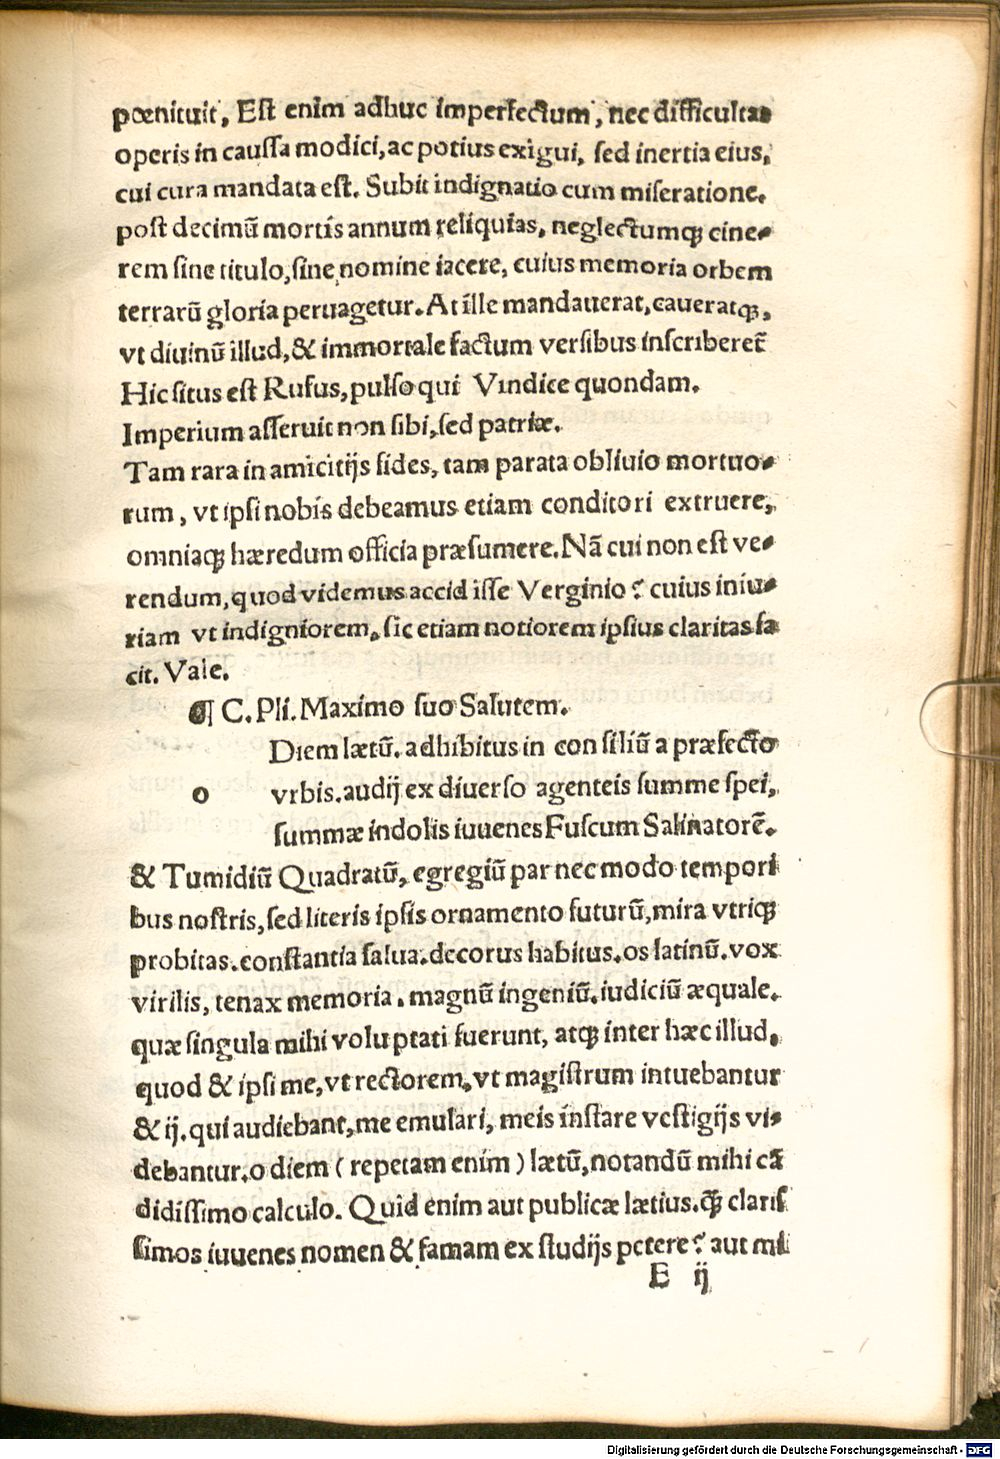 pœnituit, Est enim adhuc imperfectum, nec difficultas
operis in caussa modici, ac potius exigui, sed inertia eius,
cui cura mandata est. Subit indignatio cum miseratione.
post decimũ mortis annum reliquias, neglectumqꝫ cine-
rem sine titulo, sine nomine iacere, cuius memoria orbem
terrarũ gloria peruagetur. At ille mandauerat, caueratqꝫ,
vt diuinũ illud, & immortale factum versibus inscriberet̃
Hic situs est Rufus, pulso qui Vindice quondam.
Imperium asseruit non sibi, sed patriæ.
Tam rara in amicitijs fides, tam parata obliuio mortuo-
rum, vt ipsi nobis debeamus etiam conditori extruere,
omniaqꝫ hæredum officia præsumere. Nã cui non est ve-
rendum, quod videmus accidisse Verginio? cuius iniu-
riam vt indigniorem, sic etiam notiorem ipsius claritas fa
cit. Vale.
¶ C. Pli. Maximo suo Salutem.
Diem lætũ. adhibitus in consiliũ a præfecto
o vrbis. audij ex diuerso agenteis summe spei,
summæ indolis iuuenes Fuscum Salinatorẽ.
& Tumidiũ Quadratũ, egregiũ par nec modo tempori
bus nostris, sed literis ipsis ornamento futurũ, mira vtriqꝫ
probitas. constantia salua. decorus habitus. os latinũ. vox
virilis, tenax memoria. magnũ ingeniũ. iudiciũ æquale.
quæ singula mihi voluptati fuerunt, atqꝫ inter hæc illud,
quod & ipsi me, vt rectorem, vt magistrum intuebantur
& ij. qui audiebant, me emulari, meis instare vestigijs vi-
debantur. o diem (repetam enim) lætũ, notandũ mihi cã
didissimo calculo. Quid enim aut publicæ lætius. qꝫ̃ claris
simos iuuenes nomen & famam ex studijs petere? aut mi
E ij
Digitalisierung gefördert durch die Deutsche Forschungsgemeinschaft - DFG